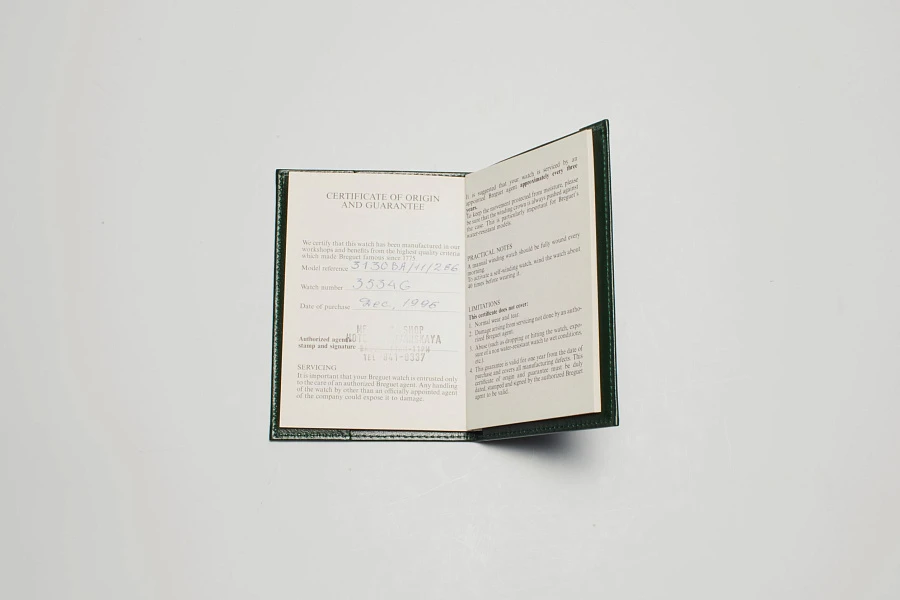 CERTIFICATE OF ORIGIN
AND GUARANTEE
We certify that this watch has been manufactured in our
workshops and benefits from the highest quality criteria
which made Breguet famous since 1775
Model reference 3130BA/11/286
Watch number 3534G
Date of purchase Dec. 1996
SHOP
Authorized agent's
stamp and signature
TEL
SERVICING
It is important that your Breguet watch is entrusted only
to the care of an authorized Breguet agent. Any handling
of the watch by other than an officially appointed agent
of the company could expose it to damage.
It is suggested that your watch is serviced by an
appointed Breguet agent approximately every three
years.
To keep the movement protected from moisture, please
be sure that the winding crown is always pushed against
the case. This is particularly important for Breguet's
water-resistant models.
PRACTICAL NOTES
A manual winding watch should be fully wound every
morning.
To activate a self-winding watch, wind the watch about
40 times before wearing it.
LIMITATIONS
This certificate does not cover:
1. Normal wear and tear.
2. Damage arising from servicing not done by an autho-
rized Breguet agent.
3. Abuse (such as dropping or hitting the watch, expo-
sure of a non water-resistant watch to wet conditions,
etc.)
4. This guarantee is valid for one year from the date of
purchase and covers all manufacturing defects. This
certificate of origin and guarantee must be duly
dated, stamped and signed by the authorized Breguet
agent to be valid.